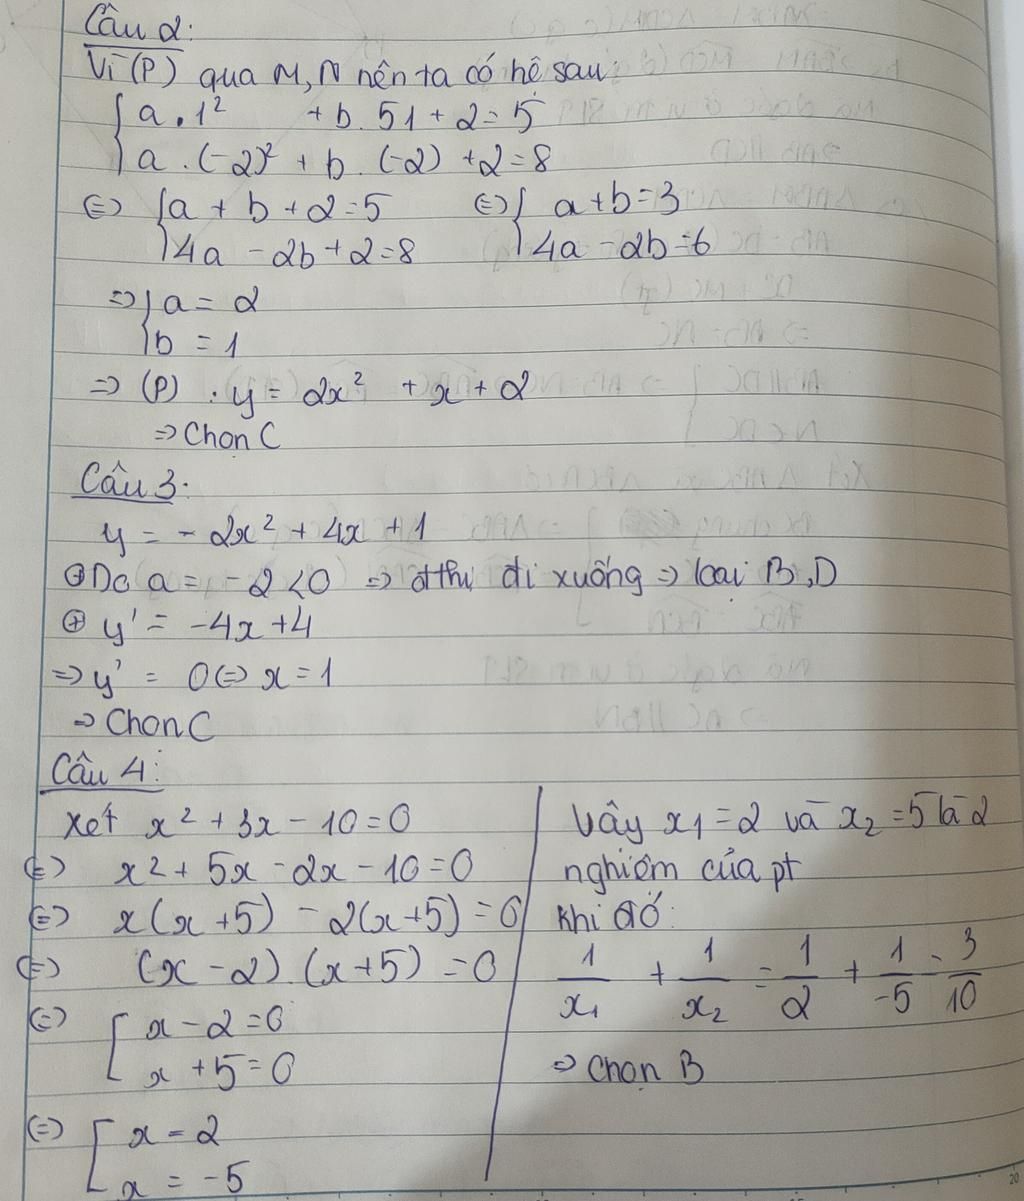 Câu 2:
Vì (P) qua M, N nên ta có hệ sau:
{ a . 1² + b. 51 + 2 = 5
a . (-2)² + b. (-2) + 2 = 8
⇔ { a + b + 2 = 5 ⇔ { a + b = 3
4a - 2b + 2 = 8 4a - 2b = 6
⇒ { a = 2
b = 1
⇒ (P) : y = 2x² + x + 2
⇒ Chọn C
Câu 3:
y = - 2x² + 4x + 1
⊕ Do a = - 2 < 0 ⇒ đthị đi xuống ⇒ loại B, D
⊕ y' = -4x + 4
⇒ y' = 0 ⇔ x = 1
⇒ Chọn C
Câu 4:
Xét x² + 3x - 10 = 0
⇔ x² + 5x - 2x - 10 = 0
⇔ x(x + 5) - 2(x + 5) = 0
⇔ (x - 2).(x + 5) = 0
⇔ [ x - 2 = 0
x + 5 = 0
⇔ [ x = 2
x = -5
Vậy x₁ = 2 và x₂ = 5 là 2
nghiệm của pt
Khi đó:
1/x₁ + 1/x₂ = 1/2 + 1/-5 = 3/10
⇒ Chọn B
20